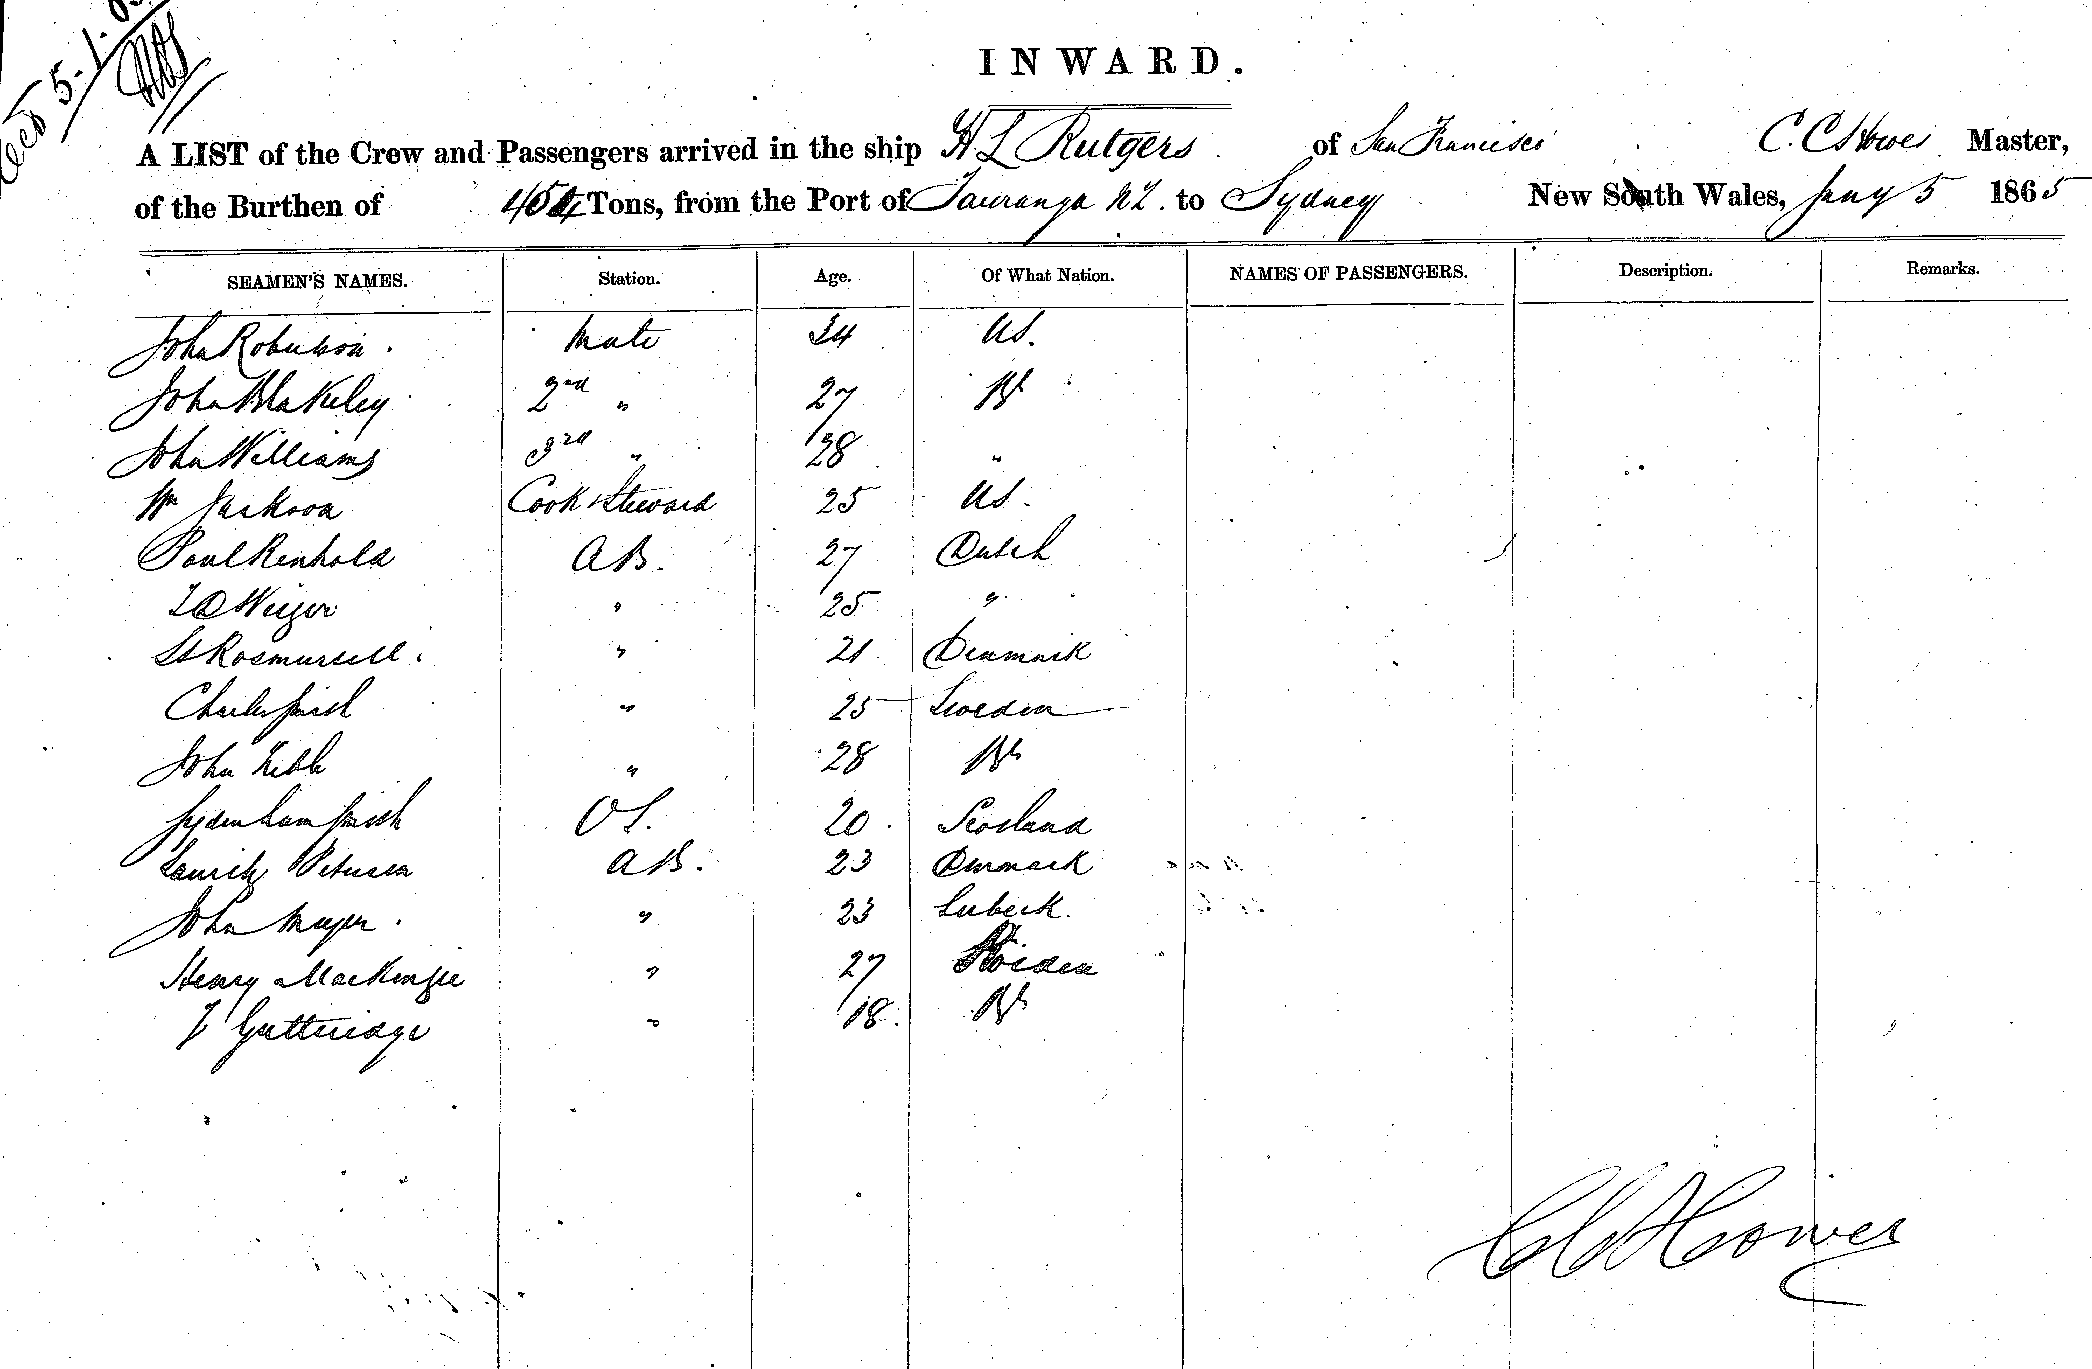 Recd 5-1-65
INWARD.
A LIST of the Crew and Passengers arrived in the ship H L Rutgers of San Francisco C. C Howes Master,
of the Burthen of 454 Tons, from the Port of Tauranga NZ. to Sydney New South Wales, Jany 5 1865
SEAMEN'S NAMES. Station. Age. Of What Nation. NAMES OF PASSENGERS. Description. Remarks.
John Robertson. Mate 34 US.
John Blakeley 2nd " 27 Br
John Williams 3rd " 28 "
Wm Jackson Cook & Steward 25 US.
Paul Renhold A B. 27 Dutch
" 25 "
" 21 Denmark
Charles Smith " 25 Sweden
John " 28 Br
Sydenham Smith O S. 20 Scotland
Lauritz Petersen A B. 23 Denmark
John Meyer. " 23 Lubeck.
Henry MacKenzie " 27 Sweden
J Gutteridge " 18. Br
C C Howes